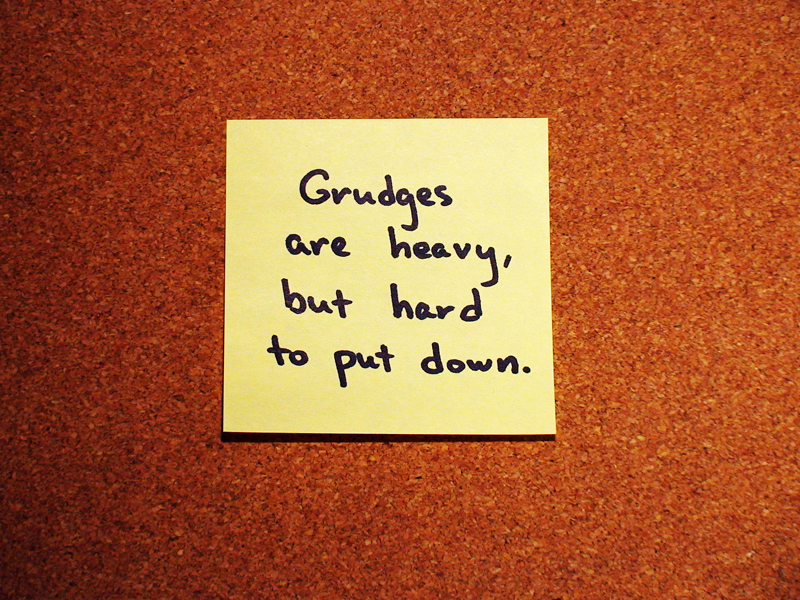 Grudges
are heavy,
but hard
to put down.